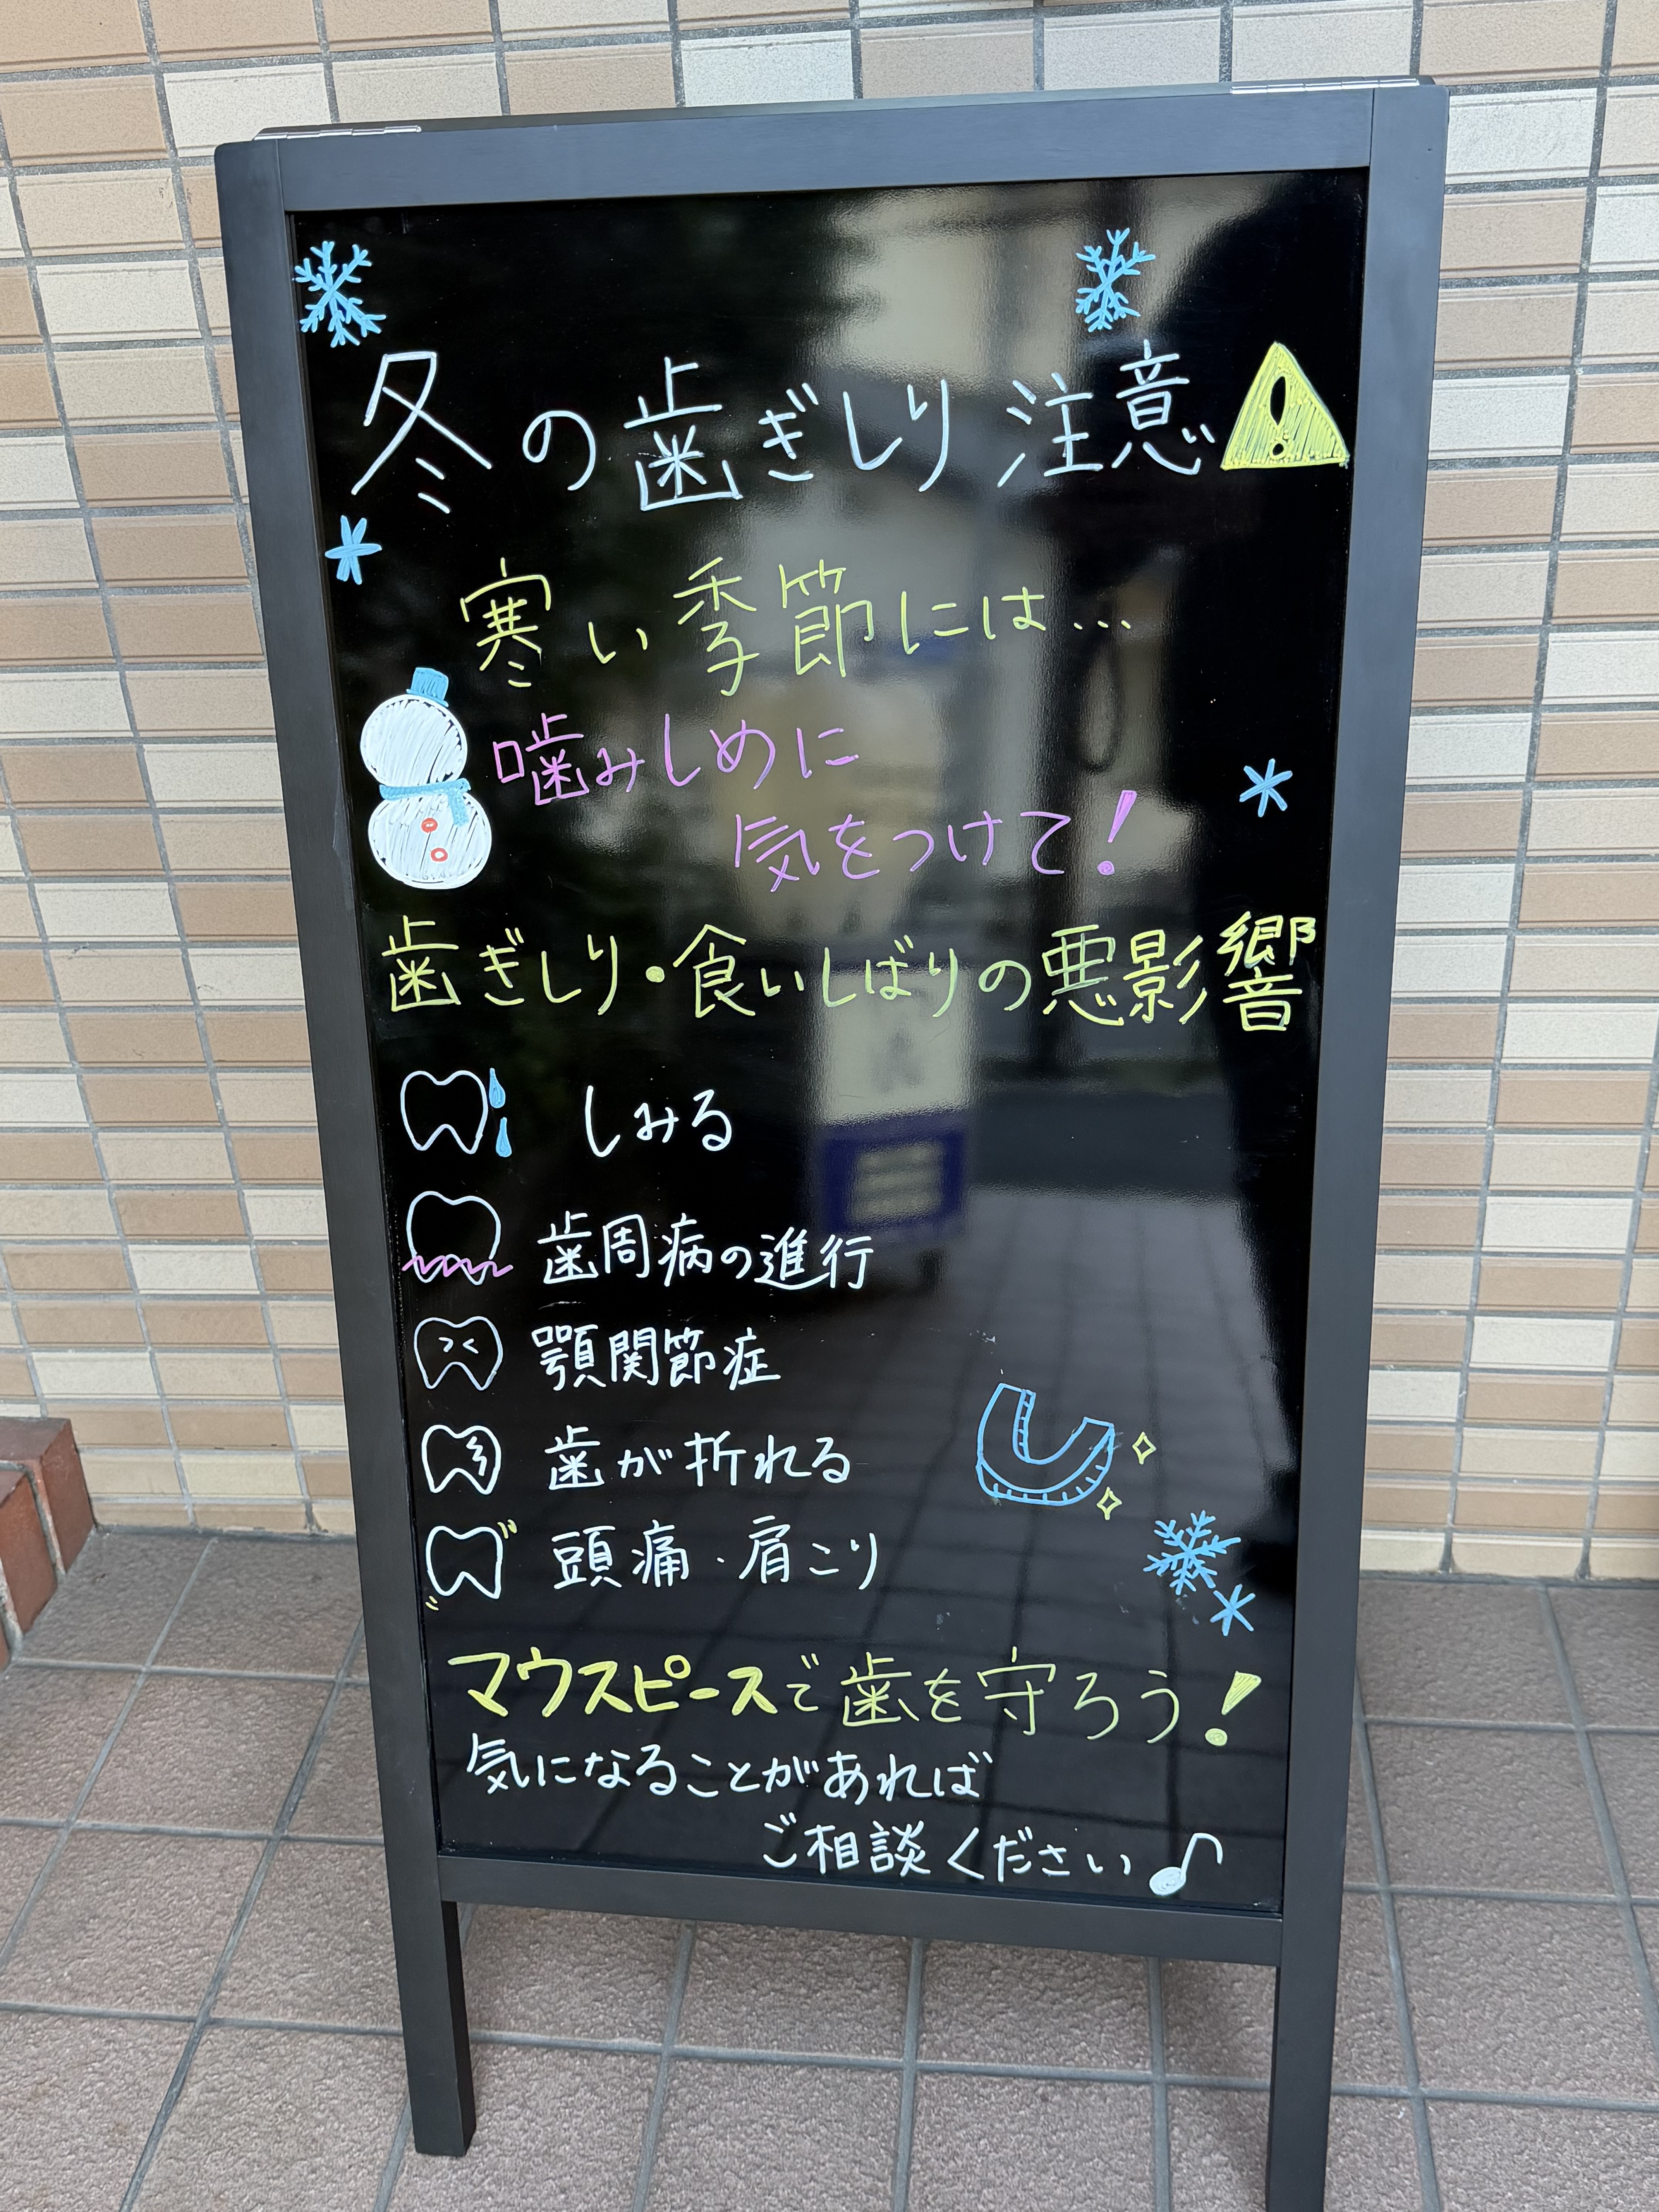 冬の歯ぎしり注意
寒い季節には…
噛みしめに
気をつけて!
歯ぎしり・食いしばりの悪影響
しみる
歯周病の進行
顎関節症
歯が折れる
頭痛・肩こり
マウスピースで歯を守ろう!
気になることがあれば
ご相談ください♪